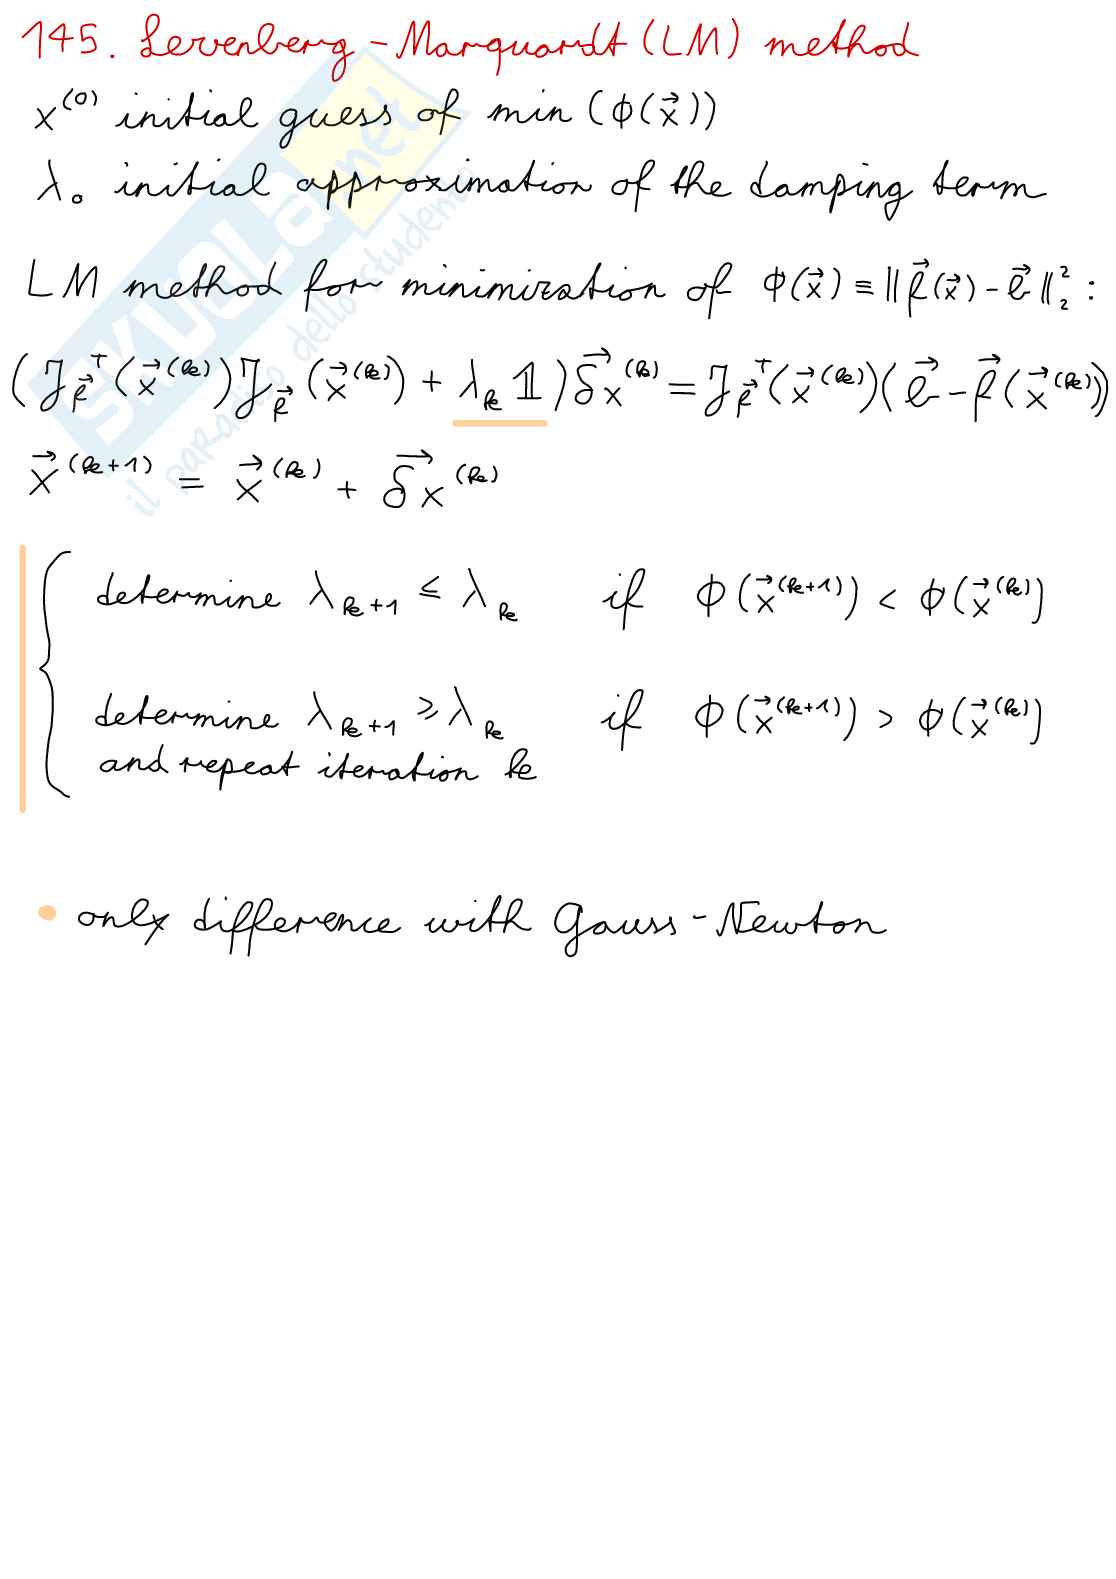 145. Levenberg-Marquardt (LM) method
x⁽⁰⁾ initial guess of min (ϕ(x⃗))
λ₀ initial approximation of the damping term
LM method for minimization of ϕ(x⃗) ≡ ‖f⃗(x⃗) - b⃗‖₂² :
(J_f⃗ᵀ(x⃗⁽ᵏ⁾) J_f⃗(x⃗⁽ᵏ⁾) + λₖ 𝟙) δ⃗x⁽ᵏ⁾ = J_f⃗ᵀ(x⃗⁽ᵏ⁾)(b⃗ - f⃗(x⃗⁽ᵏ⁾))
x⃗⁽ᵏ⁺¹⁾ = x⃗⁽ᵏ⁾ + δ⃗x⁽ᵏ⁾
determine λₖ₊₁ ≤ λₖ if ϕ(x⃗⁽ᵏ⁺¹⁾) < ϕ(x⃗⁽ᵏ⁾)
determine λₖ₊₁ ≥ λₖ if ϕ(x⃗⁽ᵏ⁺¹⁾) > ϕ(x⃗⁽ᵏ⁾)
and repeat iteration k
• only difference with Gauss-Newton
SKUOLA.net
il paradiso dello studente